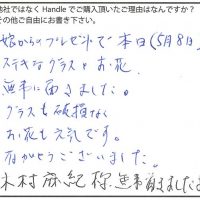 他社ではなく Handle でご購入頂いたご理由はなんですか？
その他ご自由にお書き下さい。
娘からのプレゼントで本日(5月8日)
ステキなグラスとお花
無事に届きました。
グラスも破損なく
お花も元気です。
ありがとうございました。
木村麻紀様 無事着きましたよ